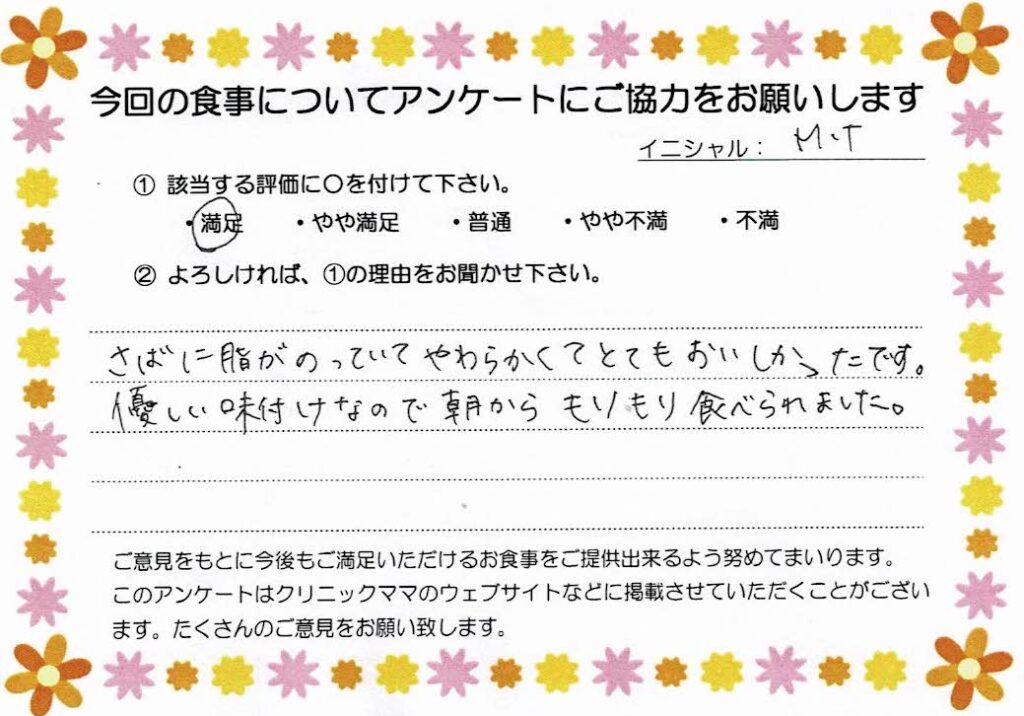 今回の食事についてアンケートにご協力をお願いします
イニシャル： M・T
① 該当する評価に〇を付けて下さい。
・満足 ・やや満足 ・普通 ・やや不満 ・不満
② よろしければ、①の理由をお聞かせ下さい。
さばに脂がのっていてやわらかくてとてもおいしかったです。
優しい味付けなので朝からもりもり食べられました。
ご意見をもとに今後もご満足いただけるお食事をご提供出来るよう努めてまいります。
このアンケートはクリニックママのウェブサイトなどに掲載させていただくことがござい
ます。たくさんのご意見をお願い致します。